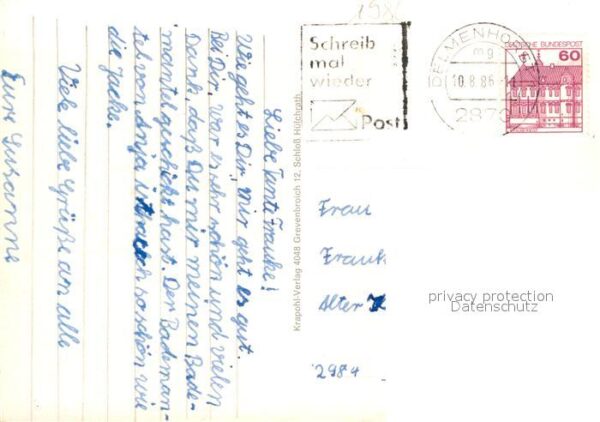 Liebe Tante Frauke!
Wie geht es Dir, mir geht es gut.
Bei Dir, war es sehr schön und vielen
Dank, daß Du mir meinen Bade-
mantel geschickt hast. Der Bademan-
tel von Anja ist auch so schön wie
die Jacke.
Viele liebe Grüße an alle
Eure Susanne
Krapohl-Verlag 4048 Grevenbroich 12, Schloß Hülchrath
198
Schreib
mal
wieder
Post
DELMENHORST
mg
10.8.86
2870
DEUTSCHE BUNDESPOST
60
Frau
Frauk
Alter
2984
privacy protection
Datenschutz